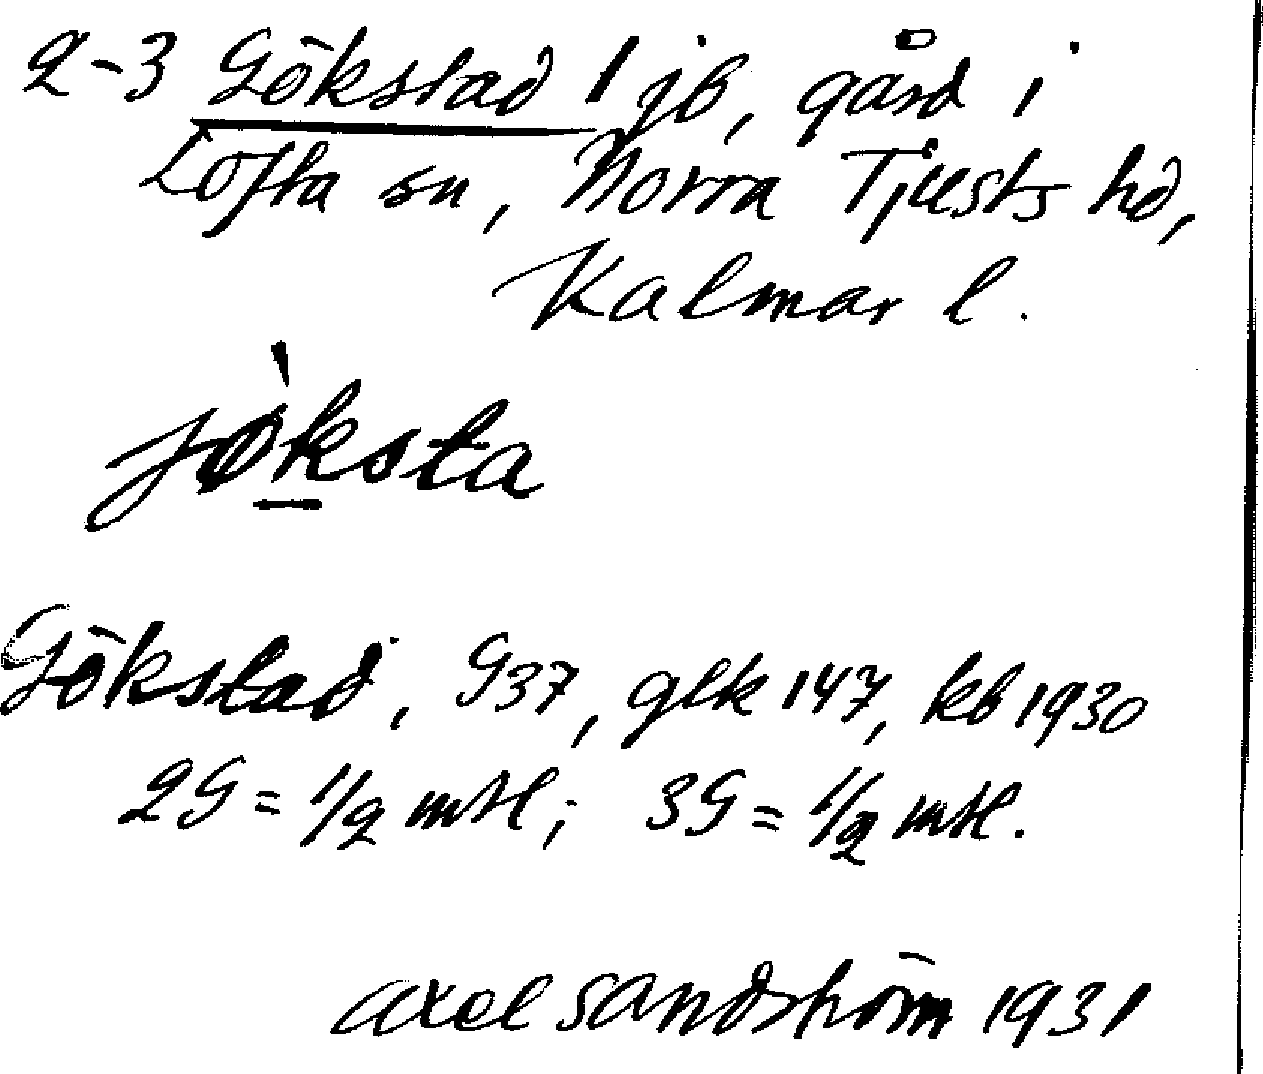 2-3 Gökstad | jb, gård i
Lofta sn, Norra Tjusts hd,
Kalmar l.
jø̀ksta
Gökstad, G37, glk 147, kb 1930
2G = 1/2 mtl; 3G = 1/2 mtl.
Axel Sandström 1931